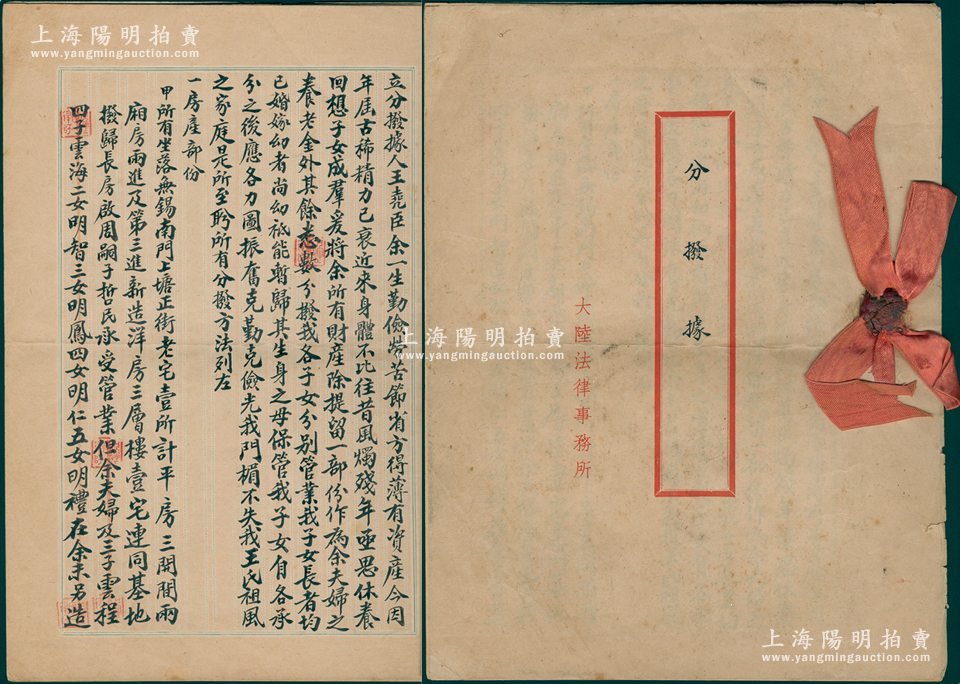 上海陽明拍賣
www.yangmingauction.com
分撥據
大陸法律事務所
立分撥據人王堯臣余一生勤儉炊苦節省方得薄有資產今因
年屆古稀精力已衰近來身體不比往昔風燭殘年亟思休養
回想子女成羣爰將余所有財產除提留一部份作為余夫婦之
養老金外其餘悉數分撥我各子女分別管業我子女長者均
已婚嫁幼者尚幼祗能暫歸其生身之母保管我子女自各承
分之後應各力圖振奮克勤克儉光我門楣不失我王氏祖風
之家庭是所至盼所有分撥方法列左
一房產部份
甲所有坐落無錫南門上塘正街老宅壹所計平房三開間兩
廂房兩進及第三進新造洋房三層樓壹宅連同基地
撥歸長房啟周嗣子哲民承受管業但余夫婦及三子雲程
四子雲海二女明智三女明鳳四女明仁五女明禮在余未另造
上海陽明拍賣
www.yangmingauction.com
上海陽明拍賣
www.yangmingauction.com